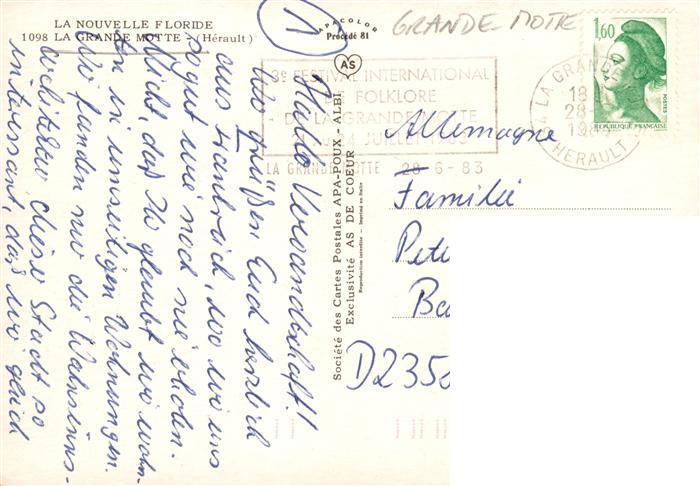 LA NOUVELLE FLORIDE
1098 LA GRANDE MOTTE (Hérault)
1
APACOLOR
Procédé 81
AS
GRANDE-MOTTE
3e FESTIVAL INTERNATIONAL
DE FOLKLORE
DE LA GRANDE MOTTE
JUILLET 1983
LA GRANDE MOTTE 28-6-83
LA GRANDE
18
28
198
HERAULT
1,60
POSTES
REPUBLIQUE FRANÇAISE
Hallo Verwandtschaft!
Wir grüßen Euch herzlich
aus Frankreich, wo wir uns
sogut wie noch nie erholen.
Nicht, daß Ihr glaubt wir woh-
nen in umseitigen Wohnungen.
Wir fanden nur die Wahnsinns-
architektur dieser Stadt so
interessant, daß wir gleich
Société des Cartes Postales APA-POUX - ALBI
Exclusivité AS DE COEUR
Reproduction interdite - Imprimé en Italie
Allemagne
Familie
Pete
Ba
D235